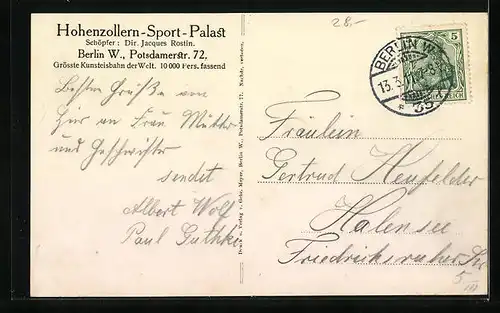 28,-
Hohenzollern-Sport-Palast
Schöpfer: Dir. Jacques Rostin.
Berlin W., Potsdamerstr. 72,
Grösste Kunsteisbahn der Welt. 10 000 Pers. fassend
Besten Grüße von
hier an Frau Mutter
und Geschwister
sendet
Albert Wolf
Paul Guthke
Druck u. Verlag v. Gebr. Meyer, Berlin W., Potsdamerstr. 27. Nachdr. verboten.
BERLIN W.
13.3.11
* 35
5
Fräulein
Gertrud Heufelder
Halensee
Friedrichsruher Str
5